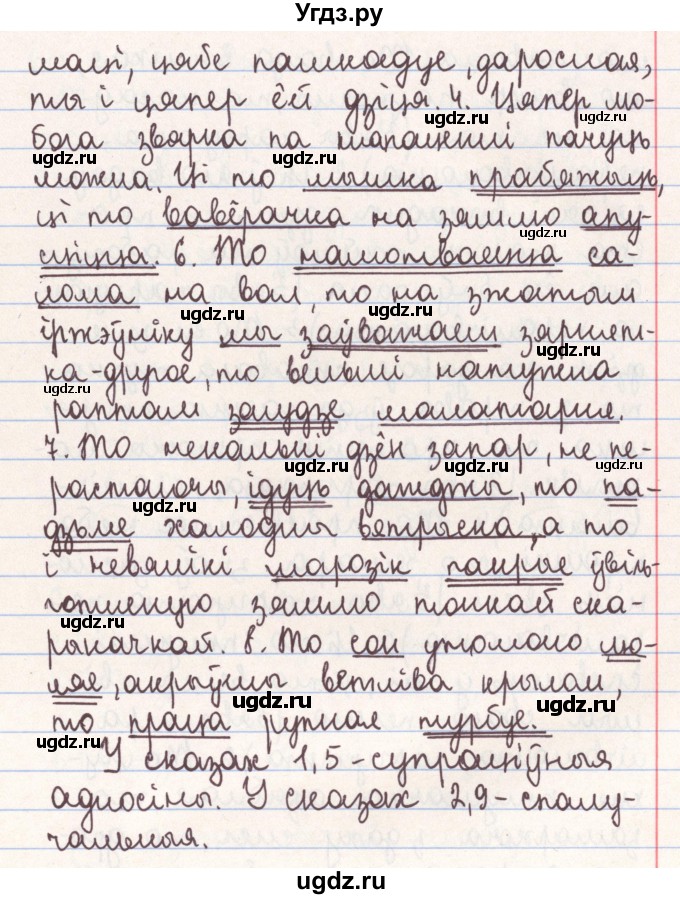 Угдз.ру
маці, цябе пашкадуе, дарослая,
ты і цяпер ёй дзіця. 4. Цяпер мо-
вола звярка па патапенні пачуць
можна. Ці то мышка прабяжыць,
ці то вавёрачка на зямлю апу-
сціцца. 6. То намотваецца са-
лома на вал, то на зжатым
іржэўніку мы заўважаем зярнят-
ка-другое, то вельмі натужна
раптам загудзе малатарня.
7. То некалькі дзён запар, не пе-
растаючы, ідуць дажджы, то па-
дзьме халодны ветрыска, а то
і невялікі марозік пакрые ўвіль-
готненую зямлю тонкай ска-
рыначкай. 8. То сон унямоло лю-
ляе, акрыўшы ветліва крылом,
то праца рупная турбуе.
У сказах 1,5 - супраціўныя
адносіны. У сказах 2,9 - спалу-
чальныя.
ugdz.ru